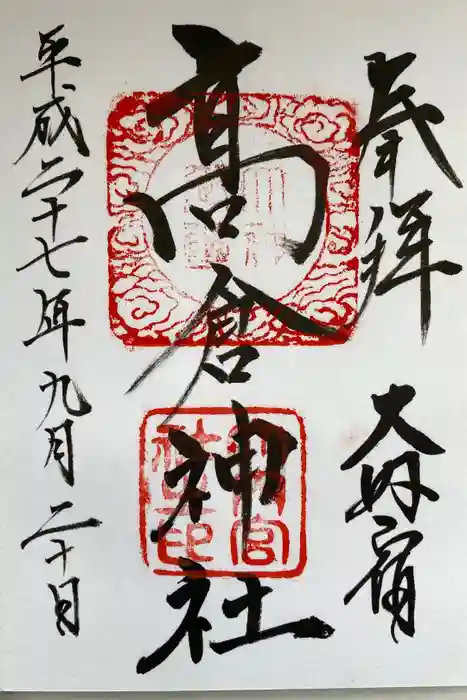 奉拝
大内宿
高倉神社
平成二十七年九月二十日